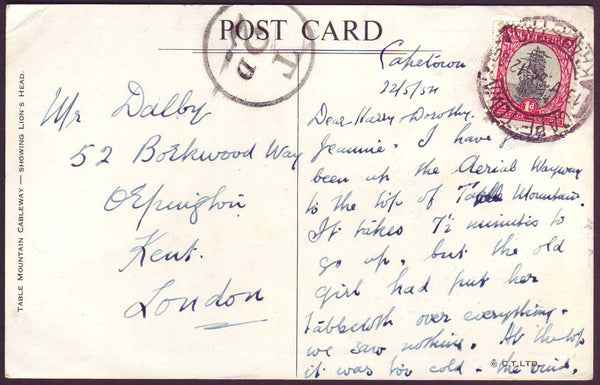 POST CARD
TABLE MOUNTAIN CABLEWAY — SHOWING LION'S HEAD.
T
OD
1d
Mr Dalby
52 Borkwood Way
Orpington
Kent.
London
Capetown
22/5/54
Dear Harry, Dorothy,
Jeannie. I have just
been up the Aerial Wayway
to the top of Table Mountain.
It takes 7½ minutes to
go up, but the old
girl had put her
tablecloth over everything &
we saw nothing. At the top
it was too cold & the wind.
C.T. LTD.